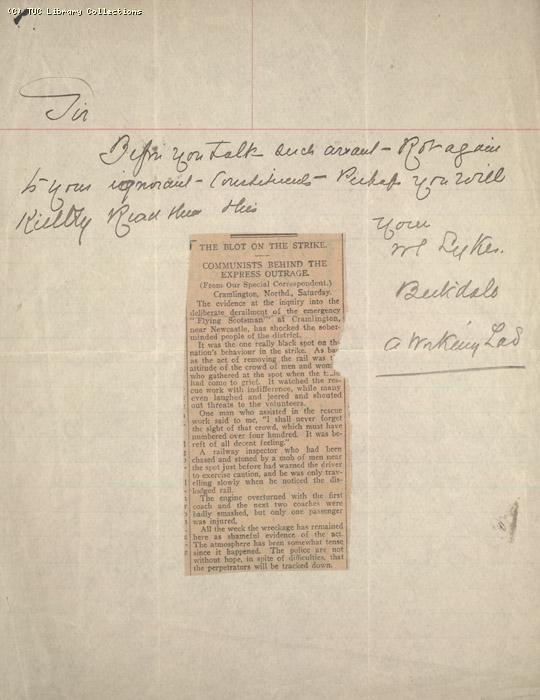 (C) TUC Library Collections
Sir
Before you talk such arrant - Rot again
to your ignorant - Constituents - Perhaps you will
Kindly Read them this
yours
W Sykes.
Birkdale
a Working Lad
THE BLOT ON THE STRIKE.
COMMUNISTS BEHIND THE
EXPRESS OUTRAGE.
(From Our Special Correspondent.)
Cramlington, Northd., Saturday.
The evidence at the inquiry into the
deliberate derailment of the emergency
"Flying Scotsman" at Cramlington,
near Newcastle, has shocked the sober-
minded people of the district.
It was the one really black spot on the
nation's behaviour in the strike. As ba
as the act of removing the rail was t
attitude of the crowd of men and wom
who gathered at the spot when the t
had come to grief. It watched the res-
cue work with indifference, while many
even laughed and jeered and shouted
out threats to the volunteers.
One man who assisted in the rescue
work said to me, "I shall never forget
the sight of that crowd, which must have
numbered over four hundred. It was be-
reft of all decent feeling."
A railway inspector who had been
chased and stoned by a mob of men near
the spot just before had warned the driver
to exercise caution, and he was only trav-
elling slowly when he noticed the dis-
lodged rail.
The engine overturned with the first
coach and the next two coaches were
badly smashed, but only one passenger
was injured.
All the week the wreckage has remained
here as shameful evidence of the act.
The atmosphere has been somewhat tense
since it happened. The police are not
without hope, in spite of difficulties, that
the perpetrators will be tracked down.